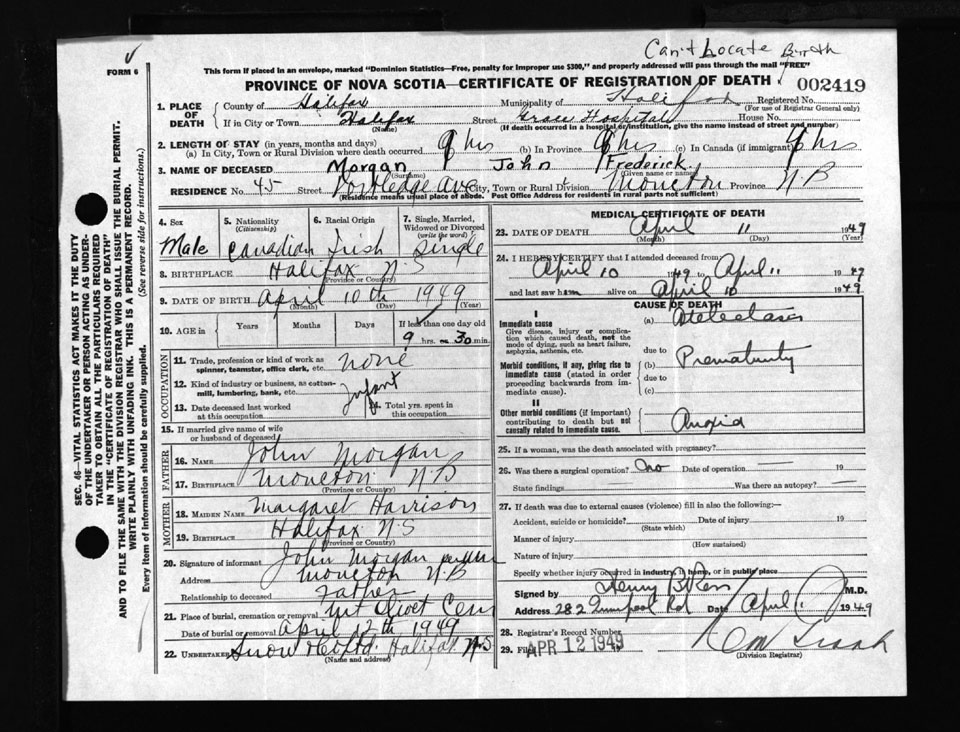 Can't Locate Birth
FORM 6
This form if placed in an envelope, marked "Dominion Statistics—Free, penalty for improper use $300," and properly addressed will pass through the mail "FREE"
PROVINCE OF NOVA SCOTIA—CERTIFICATE OF REGISTRATION OF DEATH
002419
SEC. 46—VITAL STATISTICS ACT MAKES IT THE DUTY
OF THE UNDERTAKER OR PERSON ACTING AS UNDER-
TAKER TO OBTAIN ALL THE PARTICULARS REQUIRED
IN THE "CERTIFICATE OF REGISTRATION OF DEATH"
AND TO FILE THE SAME WITH THE DIVISION REGISTRAR WHO SHALL ISSUE THE BURIAL PERMIT.
WRITE PLAINLY WITH UNFADING INK. THIS IS A PERMANENT RECORD.
Every item of information should be carefully supplied. (See reverse side for instructions.)
1. PLACE OF DEATH County of Halifax Municipality of Halifax Registered No.
(For use of Registrar General only)
If in City or Town Halifax Street Grace Hospital House No.
(Name) (If death occurred in a hospital or institution, give the name instead of street and number)
2. LENGTH OF STAY (in years, months and days)
(a) In City, Town or Rural Division where death occurred 9½ hrs (b) In Province 9½ hrs (c) In Canada (if immigrant) 9½ hrs
3. NAME OF DECEASED Morgan John Frederick
(Surname) (Given name or names)
RESIDENCE No. 45 Street Ave City, Town or Rural Moncton Province N.B
(Residence means usual place of abode. Post Office Address for residents in rural parts not sufficient)
4. Sex 5. Nationality (Citizenship) 6. Racial Origin 7. Single, Married, Widowed or Divorced (write the word)
Male Canadian Irish Single
8. BIRTHPLACE Halifax N.S
(Province or Country)
9. DATE OF BIRTH April 10th 1949
(Month) (Day) (Year)
10. AGE in Years Months Days If less than one day old
9 hrs. 30 min.
OCCUPATION
11. Trade, profession or kind of work as spinner, teamster, office clerk, etc. none
12. Kind of industry or business, as cotton-mill, lumbering, bank, etc. Infant
13. Date deceased last worked at this occupation
14. Total yrs. spent in this occupation
15. If married give name of wife or husband of deceased
FATHER
16. NAME John Morgan
17. BIRTHPLACE Moncton N B
(Province or Country)
MOTHER
18. MAIDEN NAME Margaret Harrison
19. BIRTHPLACE Halifax N.S
(Province or Country)
20. Signature of informant John Morgan
Address Moncton N.B
Relationship to deceased Father
21. Place of burial, cremation or removal Mt Olivet Cem
Date of burial or removal April 12th 1949
22. UNDERTAKER Snow Halifax N.S
(Name and address)
MEDICAL CERTIFICATE OF DEATH
23. DATE OF DEATH April 11 1949
(Month) (Day) (Year)
24. I HEREBY CERTIFY that I attended deceased from
April 10 1949 to April 11 1949
and last saw h alive on April 10 1949
CAUSE OF DEATH
I
Immediate cause
Give disease, injury or complication which caused death, not the mode of dying, such as heart failure, asphyxia, asthenia, etc.
(a) Atelectasis
due to
Morbid conditions, if any, giving rise to immediate cause (stated in order proceeding backwards from immediate cause).
(b) Prematurity
due to
(c)
II
Other morbid conditions (if important) contributing to death but not causally related to immediate cause.
Anoxia
25. If a woman, was the death associated with pregnancy?
26. Was there a surgical operation? no Date of operation — 19
State findings Was there an autopsy? —
27. If death was due to external causes (violence) fill in also the following:—
Accident, suicide or homicide? Date of injury 19
(State which)
Manner of injury
(How sustained)
Nature of injury
Specify whether injury occurred in industry, in home, or in public place
Signed by Henry B Ross M.D.
Address 282 Quinpool Rd Date April 1949
28. Registrar's Record Number
29. Filed APR 12 1949
(Division Registrar)